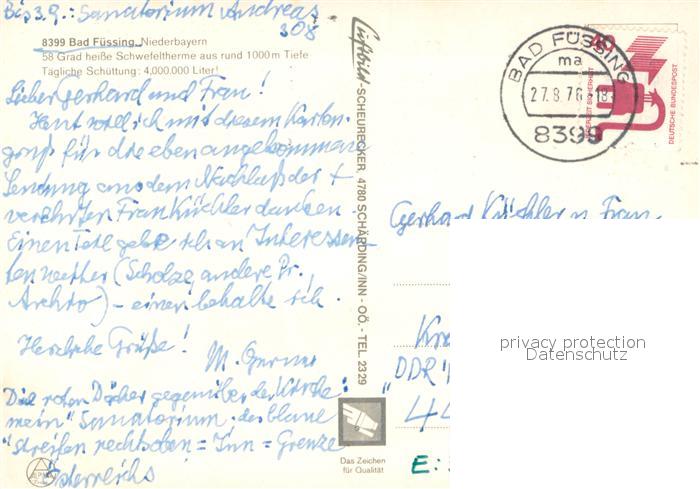 Bis 3.9.: Sanatorium Andreas
308
8399 Bad Füssing, Niederbayern
58 Grad heiße Schwefeltherme aus rund 1000 m Tiefe
Tägliche Schüttung: 4,000.000 Liter!
Lieber Gerhard und Frau!
Heut will ich mit diesem Karten-
gruß für die eben angekommene
Sendung aus dem Nachlaß der +
verehrten Frau Küchler danken.
Einen Teil gebe ich an Interessen-
ten weiter (Scholze, andere Pr.,
Archiv) - einen behalte ich.
Herzliche Grüße!
M.
Die roten Dächer gegenüber der Kirche:
mein "Sanatorium, der blaue
Streifen rechts oben = Inn = Grenze
Österreichs
Luftbild-SCHEURECKER, 4780 SCHÄRDING/INN - OÖ. - TEL. 2329
Das Zeichen
für Qualität
BAD FÜSSING
ma
27.8.76-18
8399
40
JEDERZEIT SICHERHEIT
DEUTSCHE BUNDESPOST
Gerhard Küchler u. Frau
"DDR"
E:
privacy protection
Datenschutz